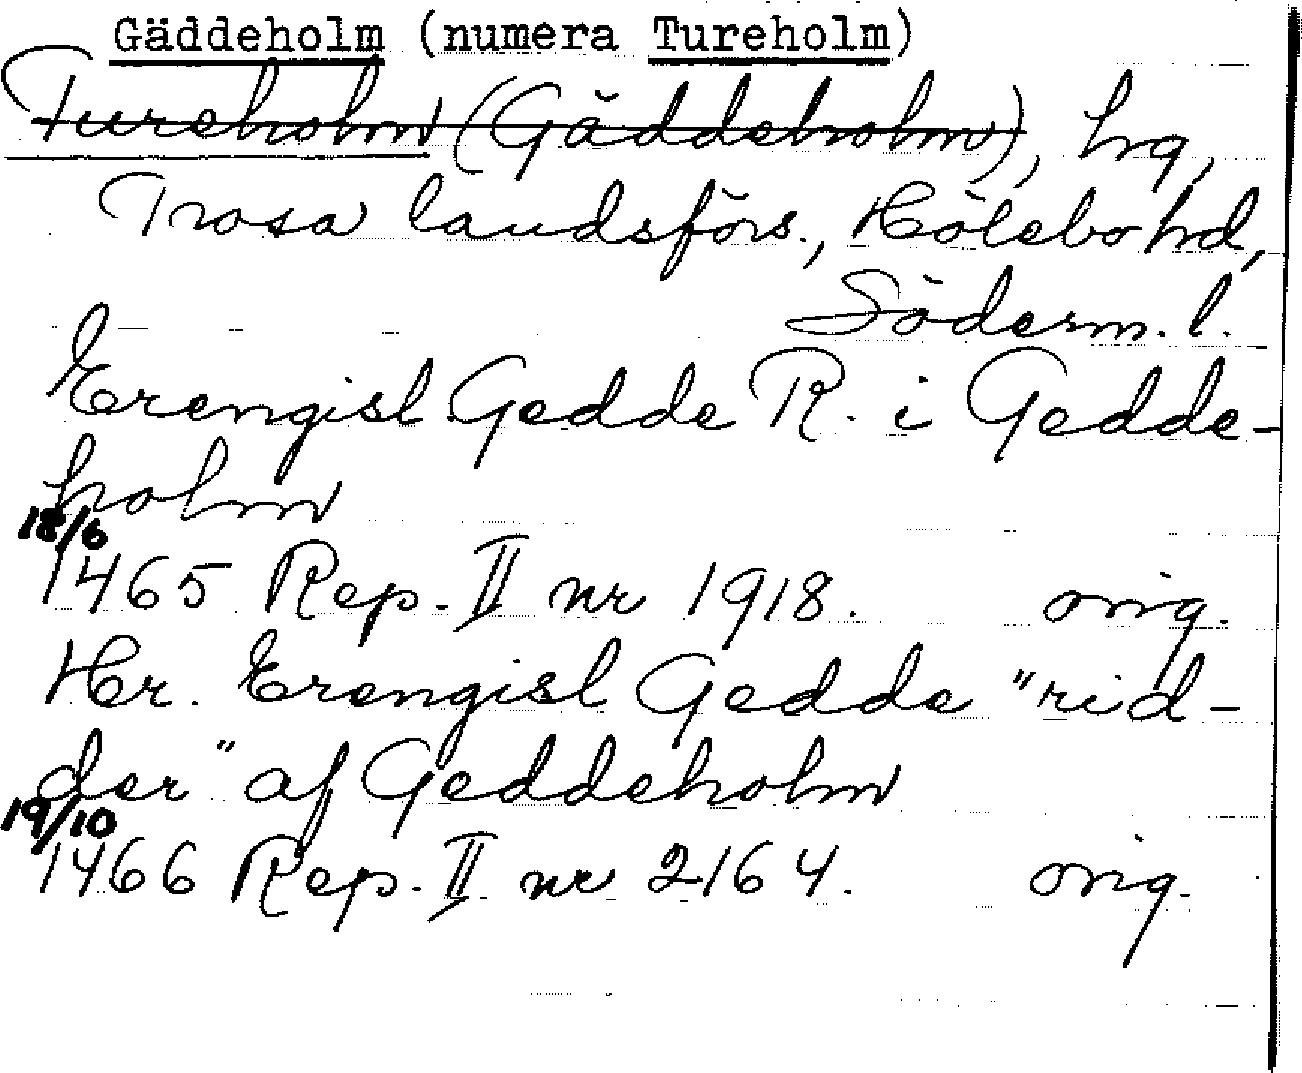 Gäddeholm (numera Tureholm)
Tureholm (Gäddeholm), hg,
Trosa landsförs., Hölebo hd,
Söderm. l.
Erengisl Gedde R. i Gedde-
holm
18/6
1465 Rep. II nr 1918. orig.
Her. Erengisl Gedde "rid-
der" af Geddeholm
19/10
1466 Rep. II nr 2164. orig.